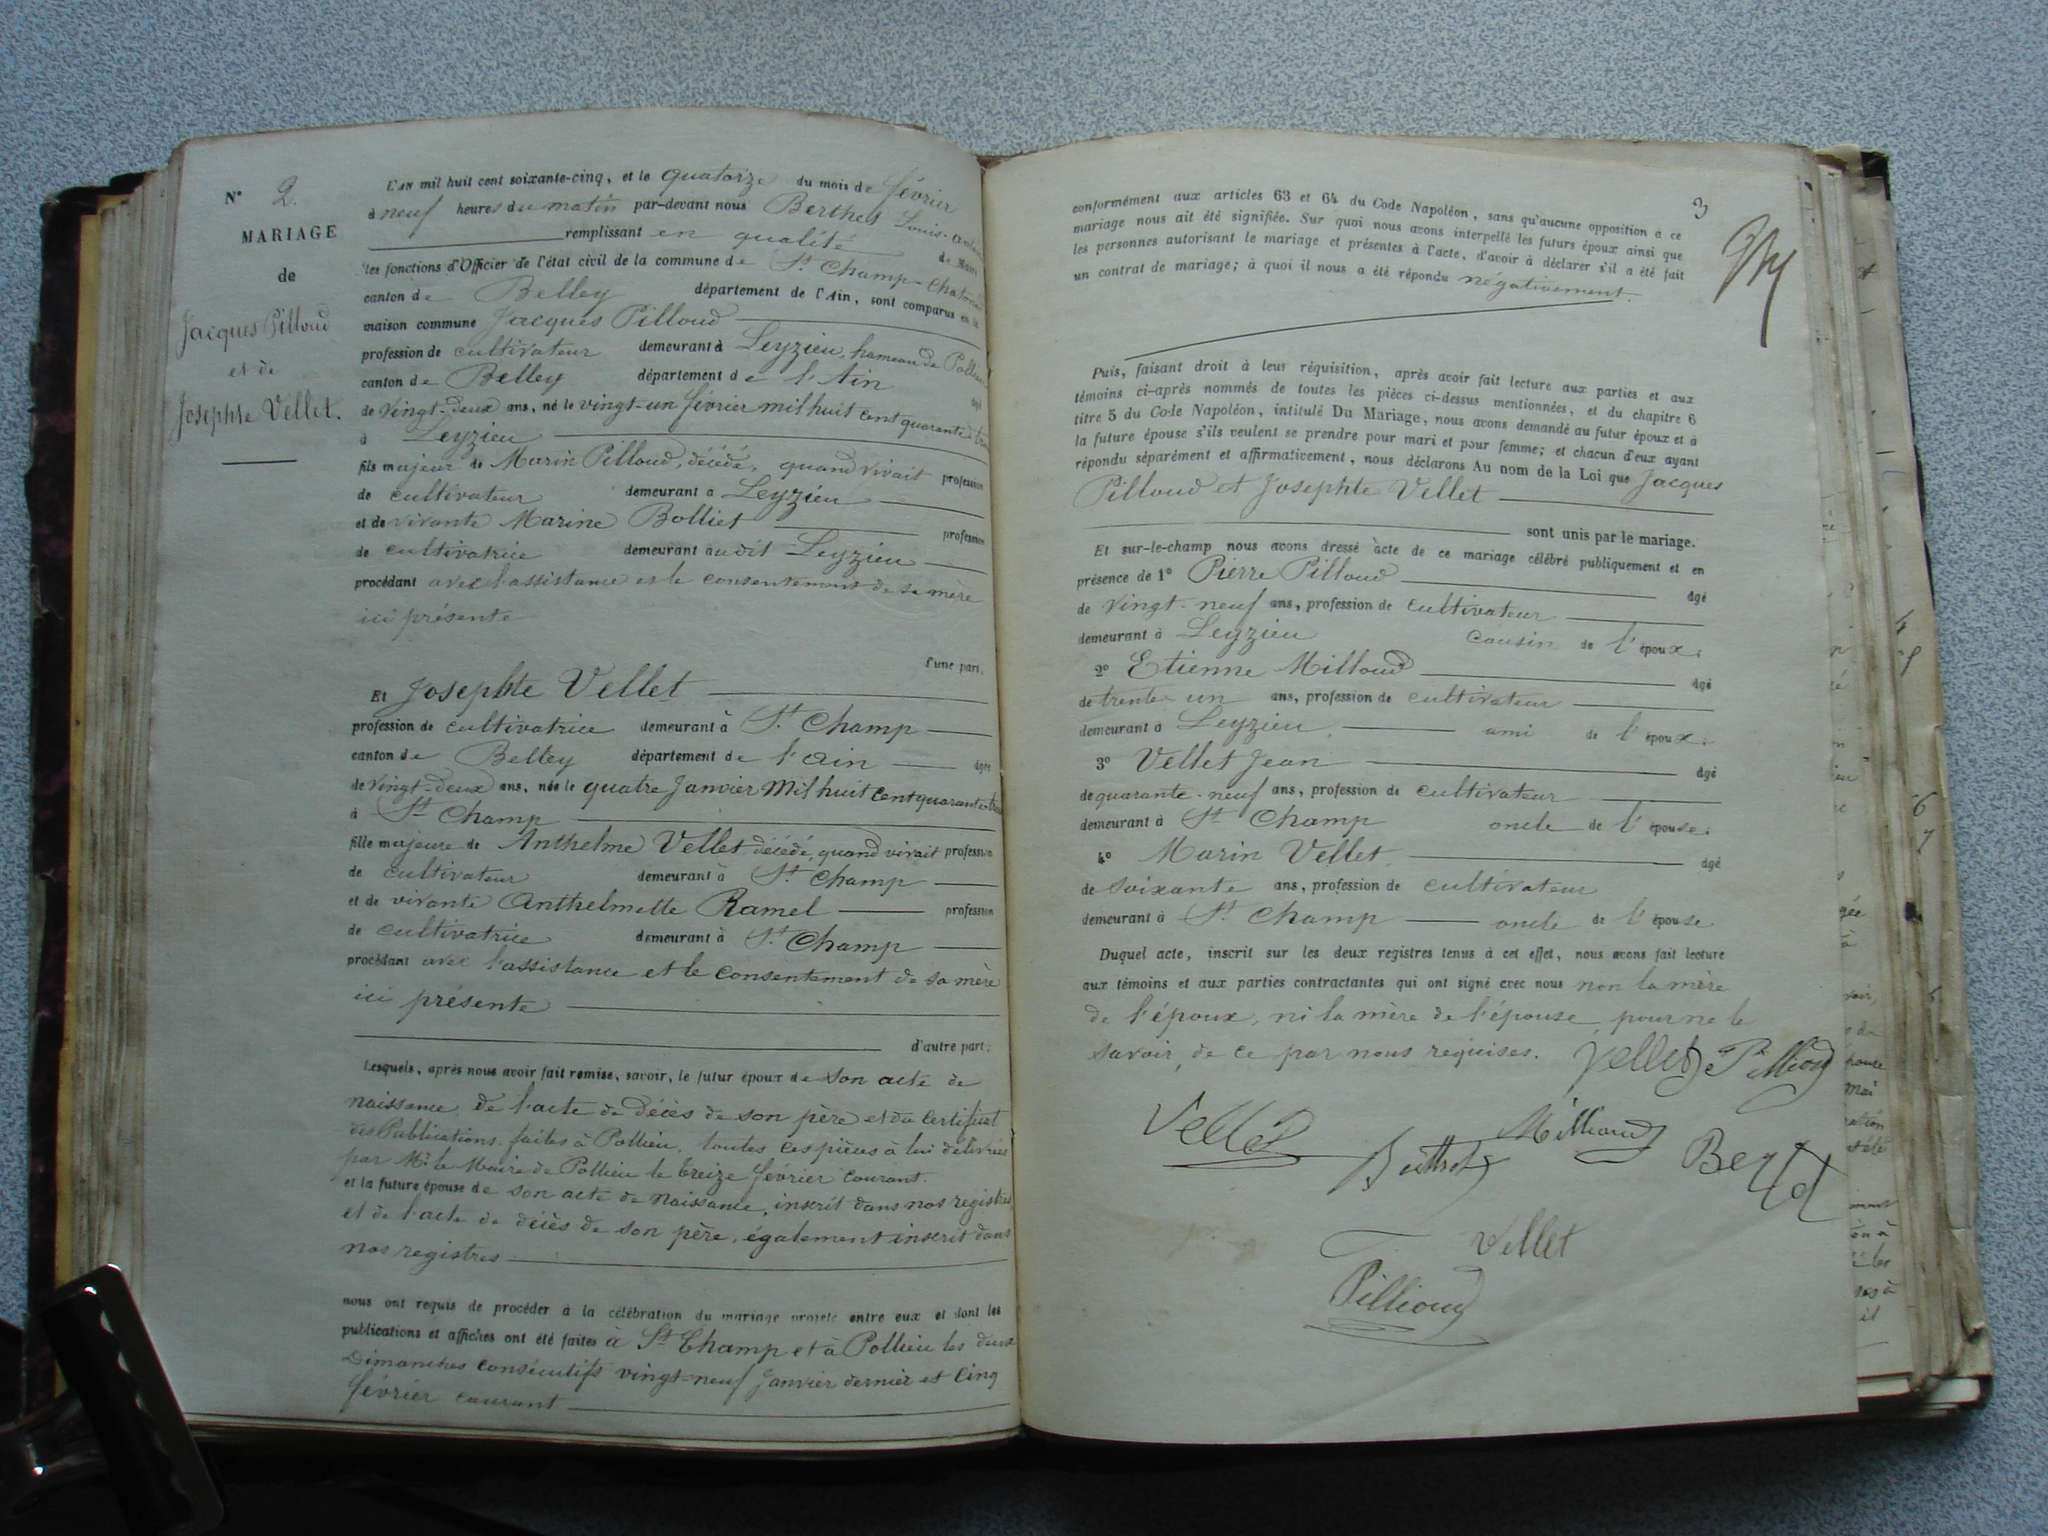 N° 2.
MARIAGE
de
Jacques Pilloud
et de
Josephte Vellet.
L'AN mil huit cent soixante-cinq, et le quatorze du mois de février
à neuf heures du matin par-devant nous Berthet Louis
remplissant en qualité de Maire
les fonctions d'Officier de l'état civil de la commune de St. Champ-
canton de Belley département de l'Ain, sont comparus en la
maison commune Jacques Pilloud
profession de cultivateur demeurant à Leyzieu, hameau de Pollieu
canton de Belley département de l'Ain âgé
de vingt-deux ans, né le vingt-un février mil huit cent quarante-trois
à Leyzieu
fils majeur de Marin Pilloud, décédé, quand vivait profession
de cultivateur demeurant à Leyzieu
et de vivante Marine Bolliet profession
de cultivatrice demeurant audit Leyzieu
procédant avec l'assistance et le consentement de sa mère
ici présente
l'une part.
Et Josephte Vellet
profession de cultivatrice demeurant à St. Champ
canton de Belley département de l'Ain âgée
de vingt-deux ans, née le quatre Janvier mil huit cent quarante-trois
à St. Champ
fille majeure de Anthelme Vellet décédé, quand vivait profession
de cultivateur demeurant à St. Champ
et de vivante Anthelmette Ramel profession
de cultivatrice demeurant à St. Champ
procédant avec l'assistance et le consentement de sa mère
ici présente
d'autre part;
Lesquels, après nous avoir fait remise, savoir, le futur époux de son acte de
naissance, de l'acte de décès de son père et du certificat
des Publications faites à Pollieu, toutes ces pièces à lui délivrées
par Mr. le Maire de Pollieu le treize février courant.
et la future épouse de son acte de naissance, inscrit dans nos registres
et de l'acte de décès de son père, également inscrit dans
nos registres
nous ont requis de procéder à la célébration du mariage projeté entre eux et dont les
publications et affiches ont été faites à St. Champ et à Pollieu les deux
Dimanches consécutifs vingt-neuf Janvier dernier et cinq
février courant
3
conformément aux articles 63 et 64 du Code Napoléon, sans qu'aucune opposition à ce
mariage nous ait été signifiée. Sur quoi nous avons interpellé les futurs époux ainsi que
les personnes autorisant le mariage et présentes à l'acte, d'avoir à déclarer s'il a été fait
un contrat de mariage; à quoi il nous a été répondu négativement.
Puis, faisant droit à leur réquisition, après avoir fait lecture aux parties et aux
témoins ci-après nommés de toutes les pièces ci-dessus mentionnées, et du chapitre 6
titre 5 du Code Napoléon, intitulé Du Mariage, nous avons demandé au futur époux et à
la future épouse s'ils veulent se prendre pour mari et pour femme; et chacun d'eux ayant
répondu séparément et affirmativement, nous déclarons Au nom de la Loi que Jacques
Pilloud et Josephte Vellet
sont unis par le mariage.
Et sur-le-champ nous avons dressé acte de ce mariage célébré publiquement et en
présence de 1° Pierre Pilloud âgé
de vingt-neuf ans, profession de cultivateur
demeurant à Leyzieu cousin de l'époux.
2° Etienne Milloud âgé
de trente-un ans, profession de cultivateur
demeurant à Leyzieu, ami de l'époux.
3° Vellet Jean âgé
de quarante-neuf ans, profession de cultivateur
demeurant à St. Champ oncle de l'épouse.
4° Marin Vellet âgé
de soixante ans, profession de cultivateur
demeurant à St. Champ oncle de l'épouse
Duquel acte, inscrit sur les deux registres tenus à cet effet, nous avons fait lecture
aux témoins et aux parties contractantes qui ont signé avec nous non la mère
de l'époux, ni la mère de l'épouse pour ne le
savoir, de ce par nous requises.
Vellet Pillioud
Vellet
Millioud
Vellet
Pillioud